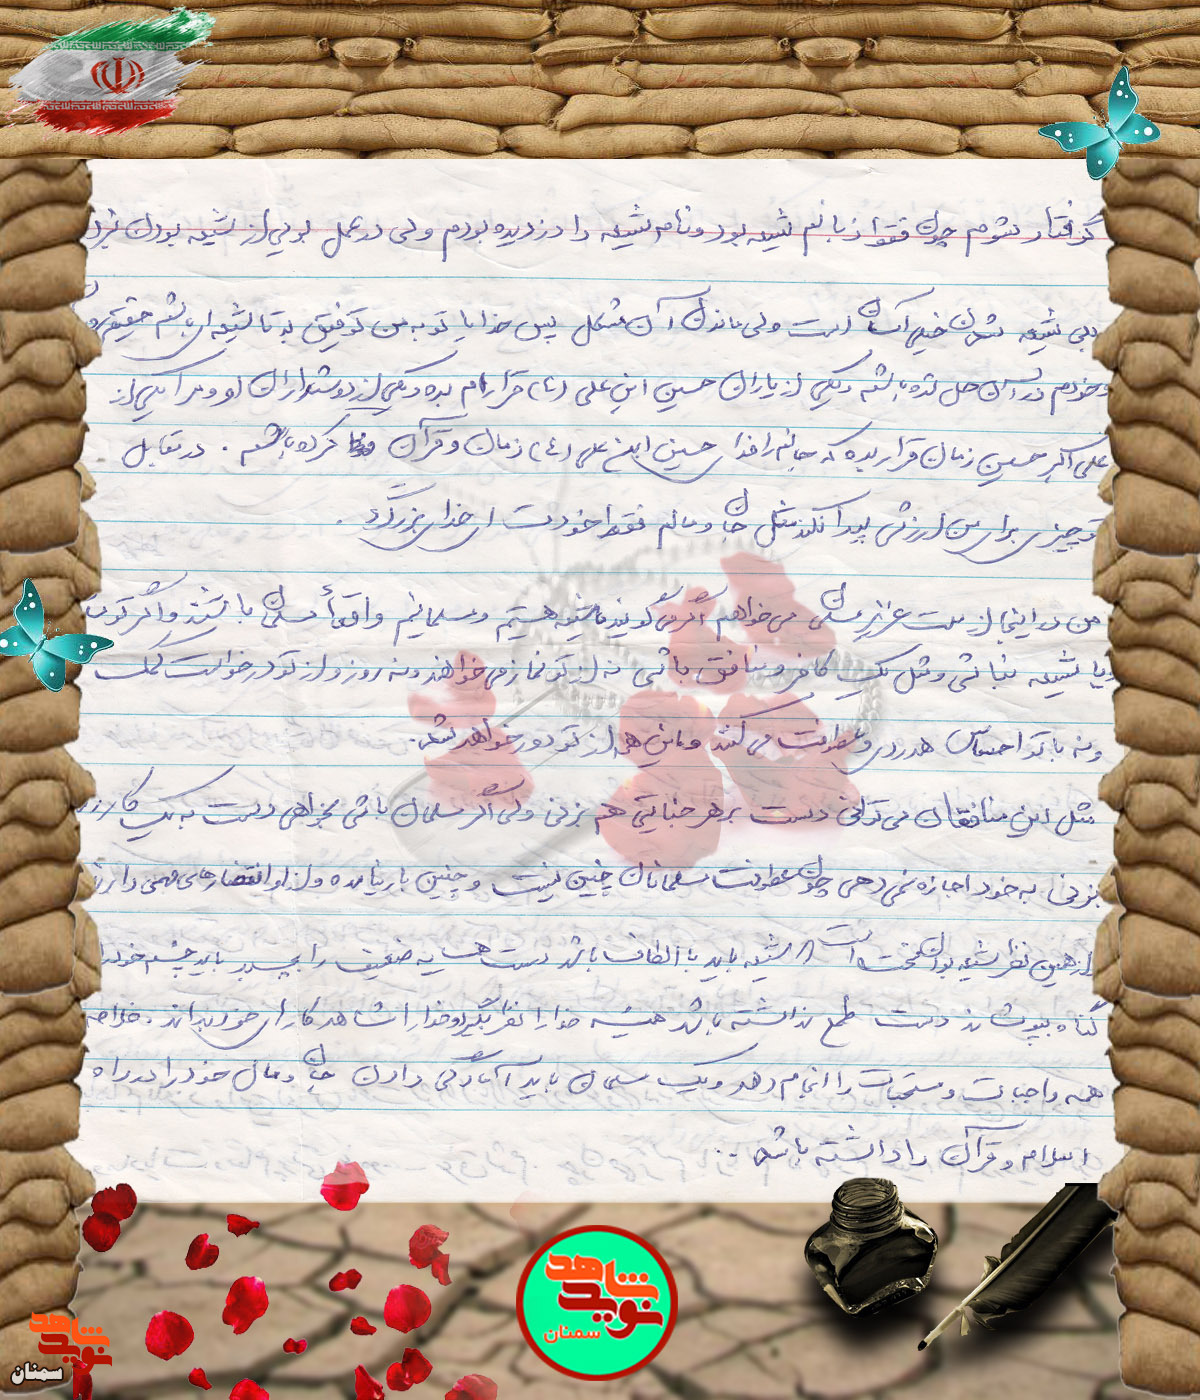 گرفتار نشوم چون فقط زبانم شیعه بود و نام شیعه را دزدیده بودم ولی در عمل بویی از شیعه بودن
بلی شیعه شدن خیلی آسان است ولی ماندن آن مشکل پس خدایا تو به من توفیق بده تا شیعه‌ای باشم حقیقی
و خودم در حل شده باشم و یکی از یاران حسین ابن علی (ع) قرارم بده و یکی از دوستداران او و مرا یکی از
علی اکبر حسین زمان قرار بده که جانم را فدای حسین ابن علی (ع) زمان و قرآن کرده باشم . در مقابل
تو چیزی برای من ارزشی پیدا نکند مثل جان و مالم فقط خودت ای خدای بزرگ .
من در اینجا از ملت عزیز مسلمان می‌خواهم اگر می‌گویند ما شیعه هستیم و مسلمانیم واقعاً مسلمان باشند و اگر تو
یا شیعه نباشی و مثل یک کافر و منافق باشی نه از تو نماز می‌خواهند و نه روزه و از تو درخواست کمک
و نه با تو احساس هدردی و عطوفت می‌کنند و این هم از تو دور خواهد شد .
مثل این منافقان می‌توانی دست بر هر جنایتی هم بزنی ولی اگر مسلمان باشی بخواهی دست به یک کار
بزنی به خود اجازه نمی‌دهی چون عطوفت مسلمانان چنین نیست و چنین بار نیامده و از او انتظارهای مهمی دارند
از همین نظر شیعه بودن سخت است شیعه باید با الطاف باشد دست هر ضعیف را بگیرد باید چشم خود را
گناه بپوشاند دست طمع نداشته باشد همیشه خدا را نظر بگیرد و خدا را شاهد کارهای خود بداند . خلاصه
همه واجبات و مستحبات را انجام دهد و یک مسلمان باید آمادگی دادن جان و مال خود را در راه
اسلام و قرآن را داشته باشد ..
نوید شاهد
سمنان
نوید شاهد
سمنان